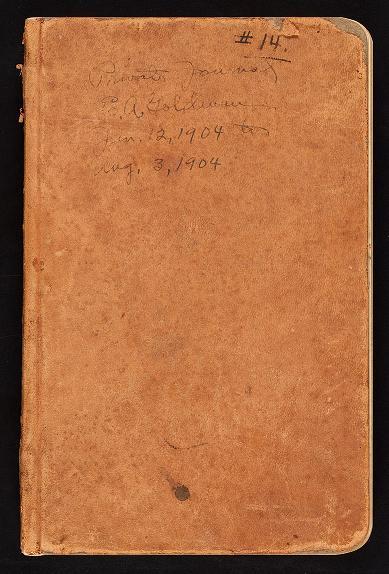 # 14.
Private Journal
E. A. Goldman
Jan. 12, 1904 to
Aug. 3, 1904